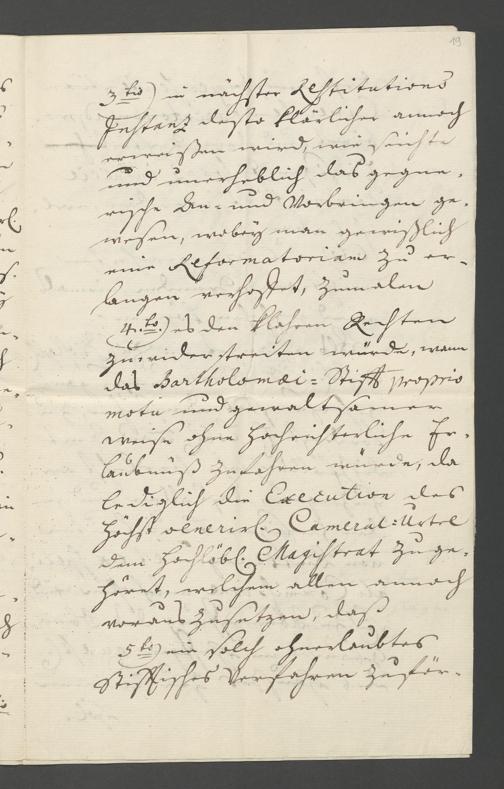 19
3tio) in nächster Restitutions
Instanz desto klärlicher annoch
erweißen wird, wie seichte
und unerheblich das gegne-
rische An- und Vorbringen ge-
wesen, wobeÿ man gewißlich
eine Reformatoriam zu er-
langen verhoffet, zumalen
4to) es den klahren Rechten
zuwider streiten würde, wann
das Bartholomæi-Stifft proprio
motu und gewaltsamer
weise ohne hochrichterliche Er-
laubnüß zufahren würde, da
lediglich die Execution des
höchst venerirl. Cameral-Urtel
dem hochlöbl. Magistrat zu ge-
höret, welchem allen annoch
voraus zusetzen, daß
5to) ein solch ohnerlaubtes
Stifftisches Verfahren zuför-